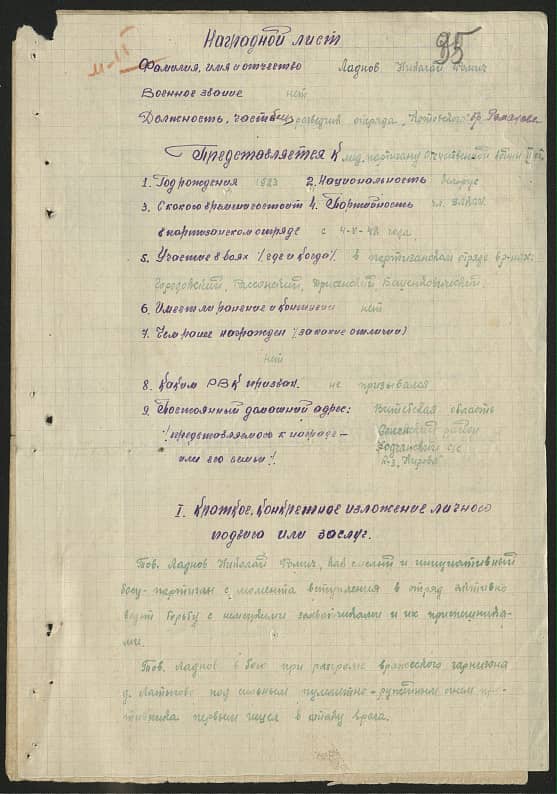 95
м-II
Наградной лист
Фамилия, имя и отчество Ладнов Николай Фомич
Военное звание нет
Должность, часть разведчик отряда "Котовского" бр.
Представляется к мед. партизану отечественной войны II ст.
1. Год рождения 1923 2. Национальность белорус
3. С какого времени состоит 4. Партийность чл. ВЛКСМ
в партизанском отряде с 4-V-42 года
5. Участие в боях /где и когда/ в партизанском отряде в р-нах:
Городокский, Россонский, Дриссенский, Бешенковичский.
6. Имеет ли ранение и контузии нет
7. Чем ранее награжден /за какие отличия/
нет
8. Каким РВК призван. не призывался
9. Постоянный домашний адрес: Витебская область
/представляемого к награде- Сенненский район
или его семьи/. Ходчанский с/с
к-з "Кирова"
I. Краткое, конкретное изложение личного
подвига или заслуг.
Тов. Ладнов Николай Фомич, как смелый и инициативный
боец-партизан с момента вступления в отряд активно
ведет борьбу с немецкими захватчиками и их приспешника-
ми.
Тов. Ладнов в бою при разгроме вражеского гарнизона
д. Латыгово под сильным пулеметно-ружейным огнем про-
тивника первым шел в атаку врага.